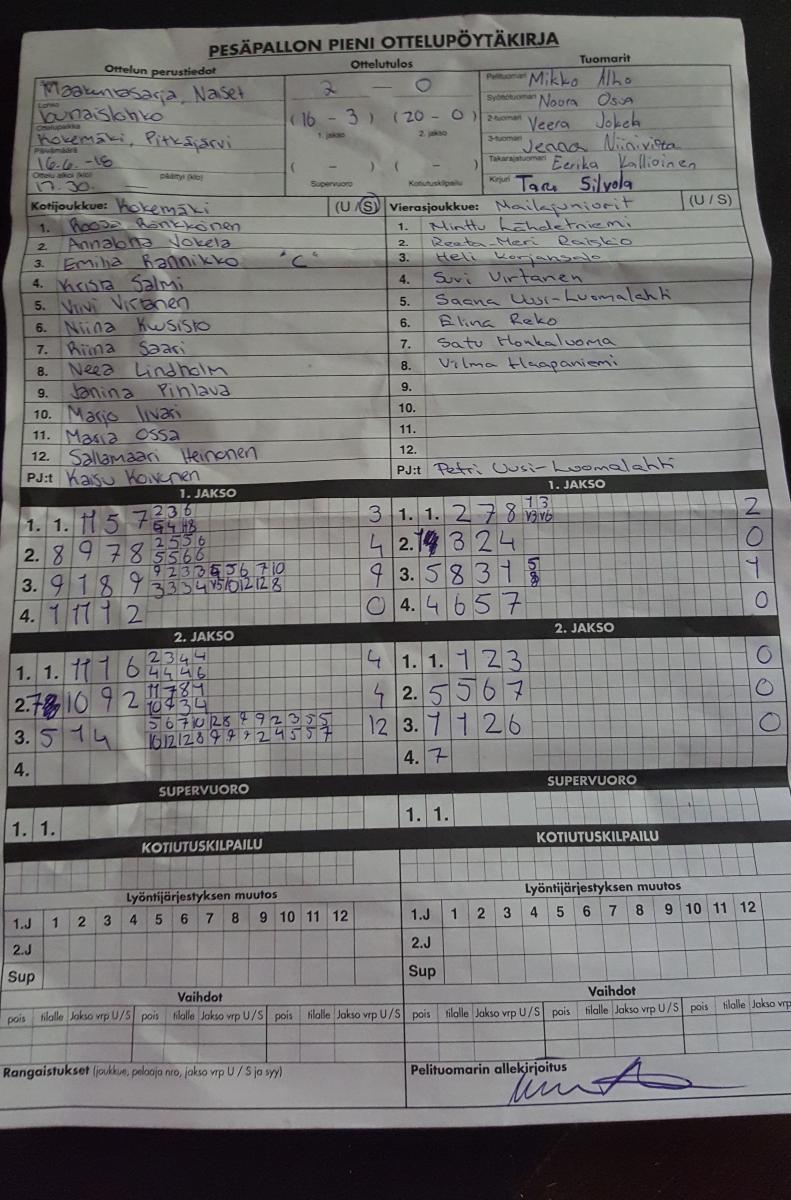 PESÄPALLON PIENI OTTELUPÖYTÄKIRJA
Ottelun perustiedot
Ottelutulos
Tuomarit
Maakuntasarja, Naiset
Lohko
Lounaislohko
Ottelupaikka
Kokemäki, Pitkäjärvi
Päivämäärä
16.6.-18
Ottelu alkoi (klo) päättyi (klo)
17.30
2 — 0
(16 - 3) (20 - 0)
1. jakso 2. jakso
( - ) ( - )
Supervuoro Kotiutuskilpailu
Pelituomari Mikko Alho
Syöttötuomari Noora Ossa
2-tuomari Veera Jokela
3-tuomari Jenna Niinivirta
Takarajatuomari Eerika Kallioinen
Kirjuri Taru Silvola
Kotijoukkue: Kokemäki (U / S)
1. Roosa Ronkkönen
2. Annalotta Jokela
3. Emilia Rannikko "C"
4. Krista Salmi
5. Viivi Virtanen
6. Niina Kuusisto
7. Riina Saari
8. Neea Lindholm
9. Janina Pihlava
10. Marjo Iivari
11. Maria Ossa
12. Sallamaari Heinonen
PJ:t Kaisu Koivunen
Vierasjoukkue: Mailajuniorit (U / S)
1. Minttu Lähdetniemi
2. Reeta-Meri Raisko
3. Heli Korjansalo
4. Suvi Virtanen
5. Saana Uusi-Luomalahti
6. Elina Reko
7. Satu Honkaluoma
8. Vilma Haapaniemi
9.
10.
11.
12.
PJ:t Petri Uusi-Luomalahti
1. JAKSO
1. 1. 11 5 7 3
2. 8 9 7 8 4
3. 9 1 8 9 9
4. 1 11 1 2 0
1. JAKSO
1. 1. 2 7 8 2
2. 3 2 4 0
3. 5 8 3 1 1
4. 4 6 5 7 0
2. JAKSO
1. 1. 11 1 6 4
2. 10 9 2 4
3. 5 1 4 12
4.
2. JAKSO
1. 1. 1 2 3 0
2. 5 5 6 7 0
3. 1 1 2 6 0
4. 7
SUPERVUORO
1. 1.
SUPERVUORO
1. 1.
KOTIUTUSKILPAILU
KOTIUTUSKILPAILU
Lyöntijärjestyksen muutos
1.J 1 2 3 4 5 6 7 8 9 10 11 12
2.J
Sup
Lyöntijärjestyksen muutos
1.J 1 2 3 4 5 6 7 8 9 10 11 12
2.J
Sup
Vaihdot
pois tilalle Jakso vrp U / S pois tilalle Jakso vrp U / S pois tilalle Jakso vrp U / S
Vaihdot
pois tilalle Jakso vrp U / S pois tilalle Jakso vrp U / S pois tilalle Jakso vrp
Rangaistukset (joukkue, pelaaja nro, jakso vrp U / S ja syy)
Pelituomarin allekirjoitus